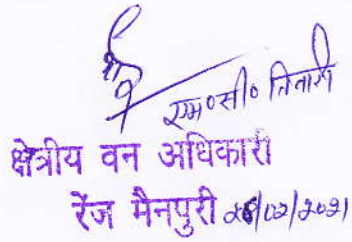 एम०सी० तिवारी
क्षेत्रीय वन अधिकारी
रेंज मैनपुरी /02/2021